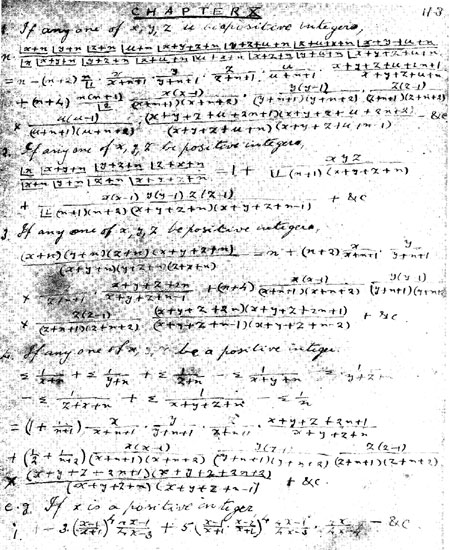 CHAPTER X
113
1. If any one of x, y, z u be a positive integers,
= n - (n+2) n/⌊1 · x/x+n+1 · y/y+n+1 · z/z+n+1 · u/u+n+1 · x+y+z+u+2n+1/x+y+z+u+n
+ (n+4) n(n+1)/⌊2 · x(x-1)/(x+n+1)(x+n+2) · y(y-1)/(y+n+1)(y+n+2) · z(z-1)/(z+n+1)(z+n+2)
× u(u-1)/(u+n+1)(u+n+2) · (x+y+z+u+2n+1)(x+y+z+u+2n+2)/(x+y+z+u+n)(x+y+z+u+n-1) - &c
2. If any one of x, y, z be positive integers,
⌊n ⌊x+y+n ⌊y+z+n ⌊z+x+n/⌊x+n ⌊y+n ⌊z+n ⌊x+y+z+n = 1 + xyz/⌊1 (n+1)(x+y+z+n)
+ x(x-1) y(y-1) z(z-1)/⌊2 (n+1)(n+2)(x+y+z+n)(x+y+z+n-1) + &c
3. If any one of x, y, z be positive integers,
(x+n)(y+n)(z+n)(x+y+z+n)/(x+y+n)(y+z+n)(z+x+n) = n + (n+2) x/x+n+1 · y/y+n+1
× z/z+n+1 · x+y+z+2n/x+y+z+n-1 + (n+4) x(x-1)/(x+n+1)(x+n+2) · y(y-1)/(y+n+1)(y+n
× z(z-1)/(z+n+1)(z+n+2) · (x+y+z+2n)(x+y+z+2n+1)/(x+y+z+n-1)(x+y+z+n-2) + &c.
4. If any one of x, y, z be a positive integer.
Σ 1/x+n + Σ 1/y+n + Σ 1/z+n - Σ 1/x+y+n - Σ 1/y+z+n
- Σ 1/z+x+n + Σ 1/x+y+z+n - Σ 1/n
= (1 + 1/n+1) x/x+n+1 · y/y+n+1 · z/z+n+1 · x+y+z+2n+1/x+y+z+n
+ (1/2 + 1/n+2) x(x-1)/(x+n+1)(x+n+2) · y(y-1)/(y+n+1)(y+n+2) · z(z-1)/(z+n+1)(z+n+2)
× (x+y+z+2n+1)(x+y+z+2n+2)/(x+y+z+n)(x+y+z+n-1) + &c.
e.g. If x is a positive integer
i. 1 - 3 (x-1/x+1)^4 4x-1/4x-3 + 5 (x-1/x+1 · x-2/x+2)^4 4x-1/4x-3 · 4x/4x-4 - &c